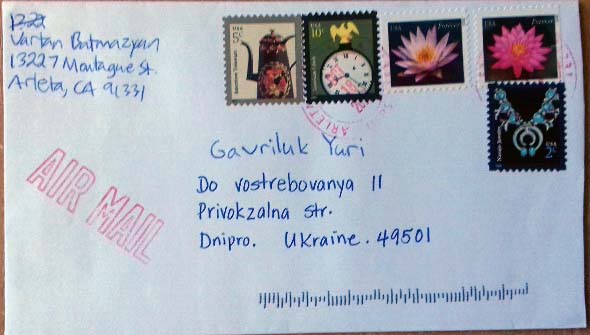 Vartan Batmazyan
13227 Montague st.
Arleta, CA 91331
USA
5¢
USA
10¢
USA Forever
USA Forever
USA
2¢
ARLETA
AIR MAIL
Gavriluk Yuri
Do vostrebovanya 11
Privokzalna str.
Dnipro. Ukraine. 49501